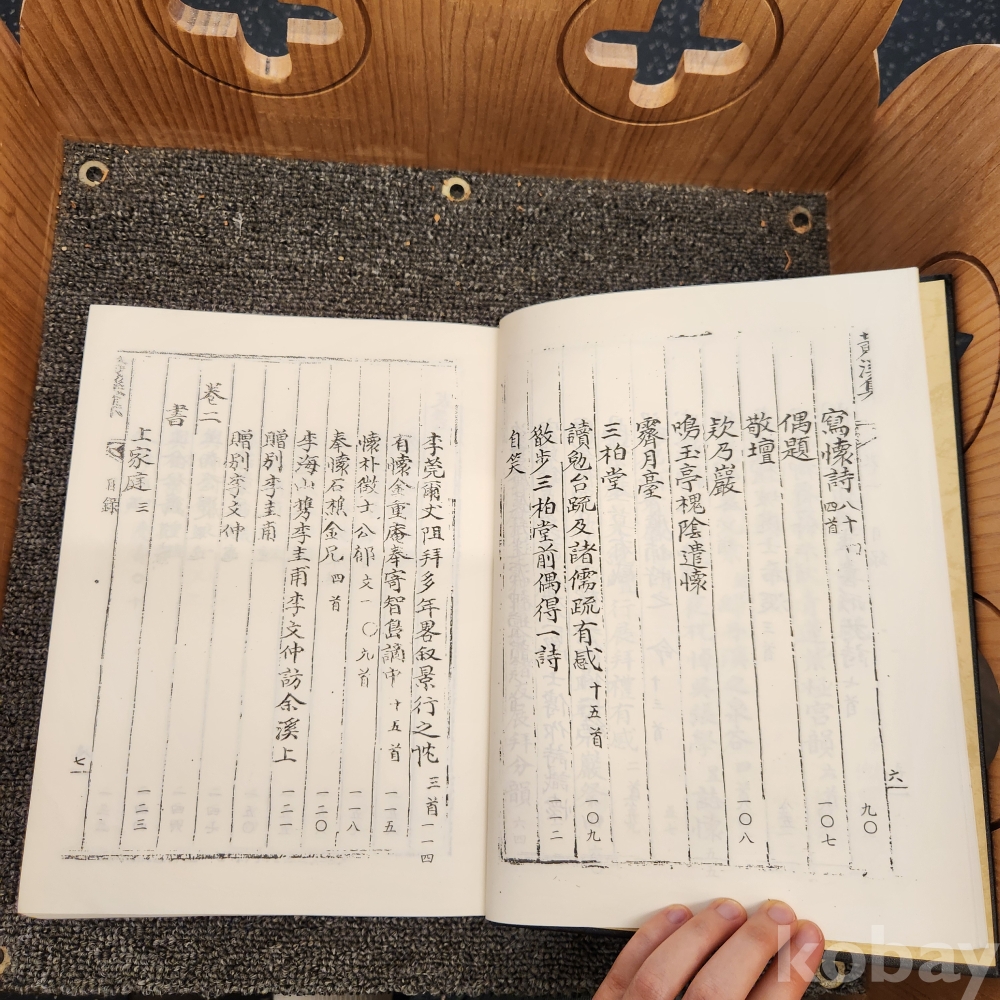 寫懷詩 八十四首 九〇
偶題 一〇七
敬壇
欸乃巖 一〇八
鳴玉亭槐陰遣懷
霽月臺
三柏堂
讀勉台疏及諸儒疏有感 十五首 一〇九
散步三柏堂前偶得一詩 一一二
自笑
六
李莞爾丈阻拜多年畧叙景行之忱 三首 一一四
有懷金重庵奉寄智島謫中 十五首 一一五
懷朴徵士公郁文一 〇九首 一一八
奉懷石樵金兄 四首 一二〇
李海山携李圭甫李文仲訪余溪上 一二一
贈別李圭甫
贈別李文仲
卷二
書
上家庭 三 一二三
目錄
七
kobay